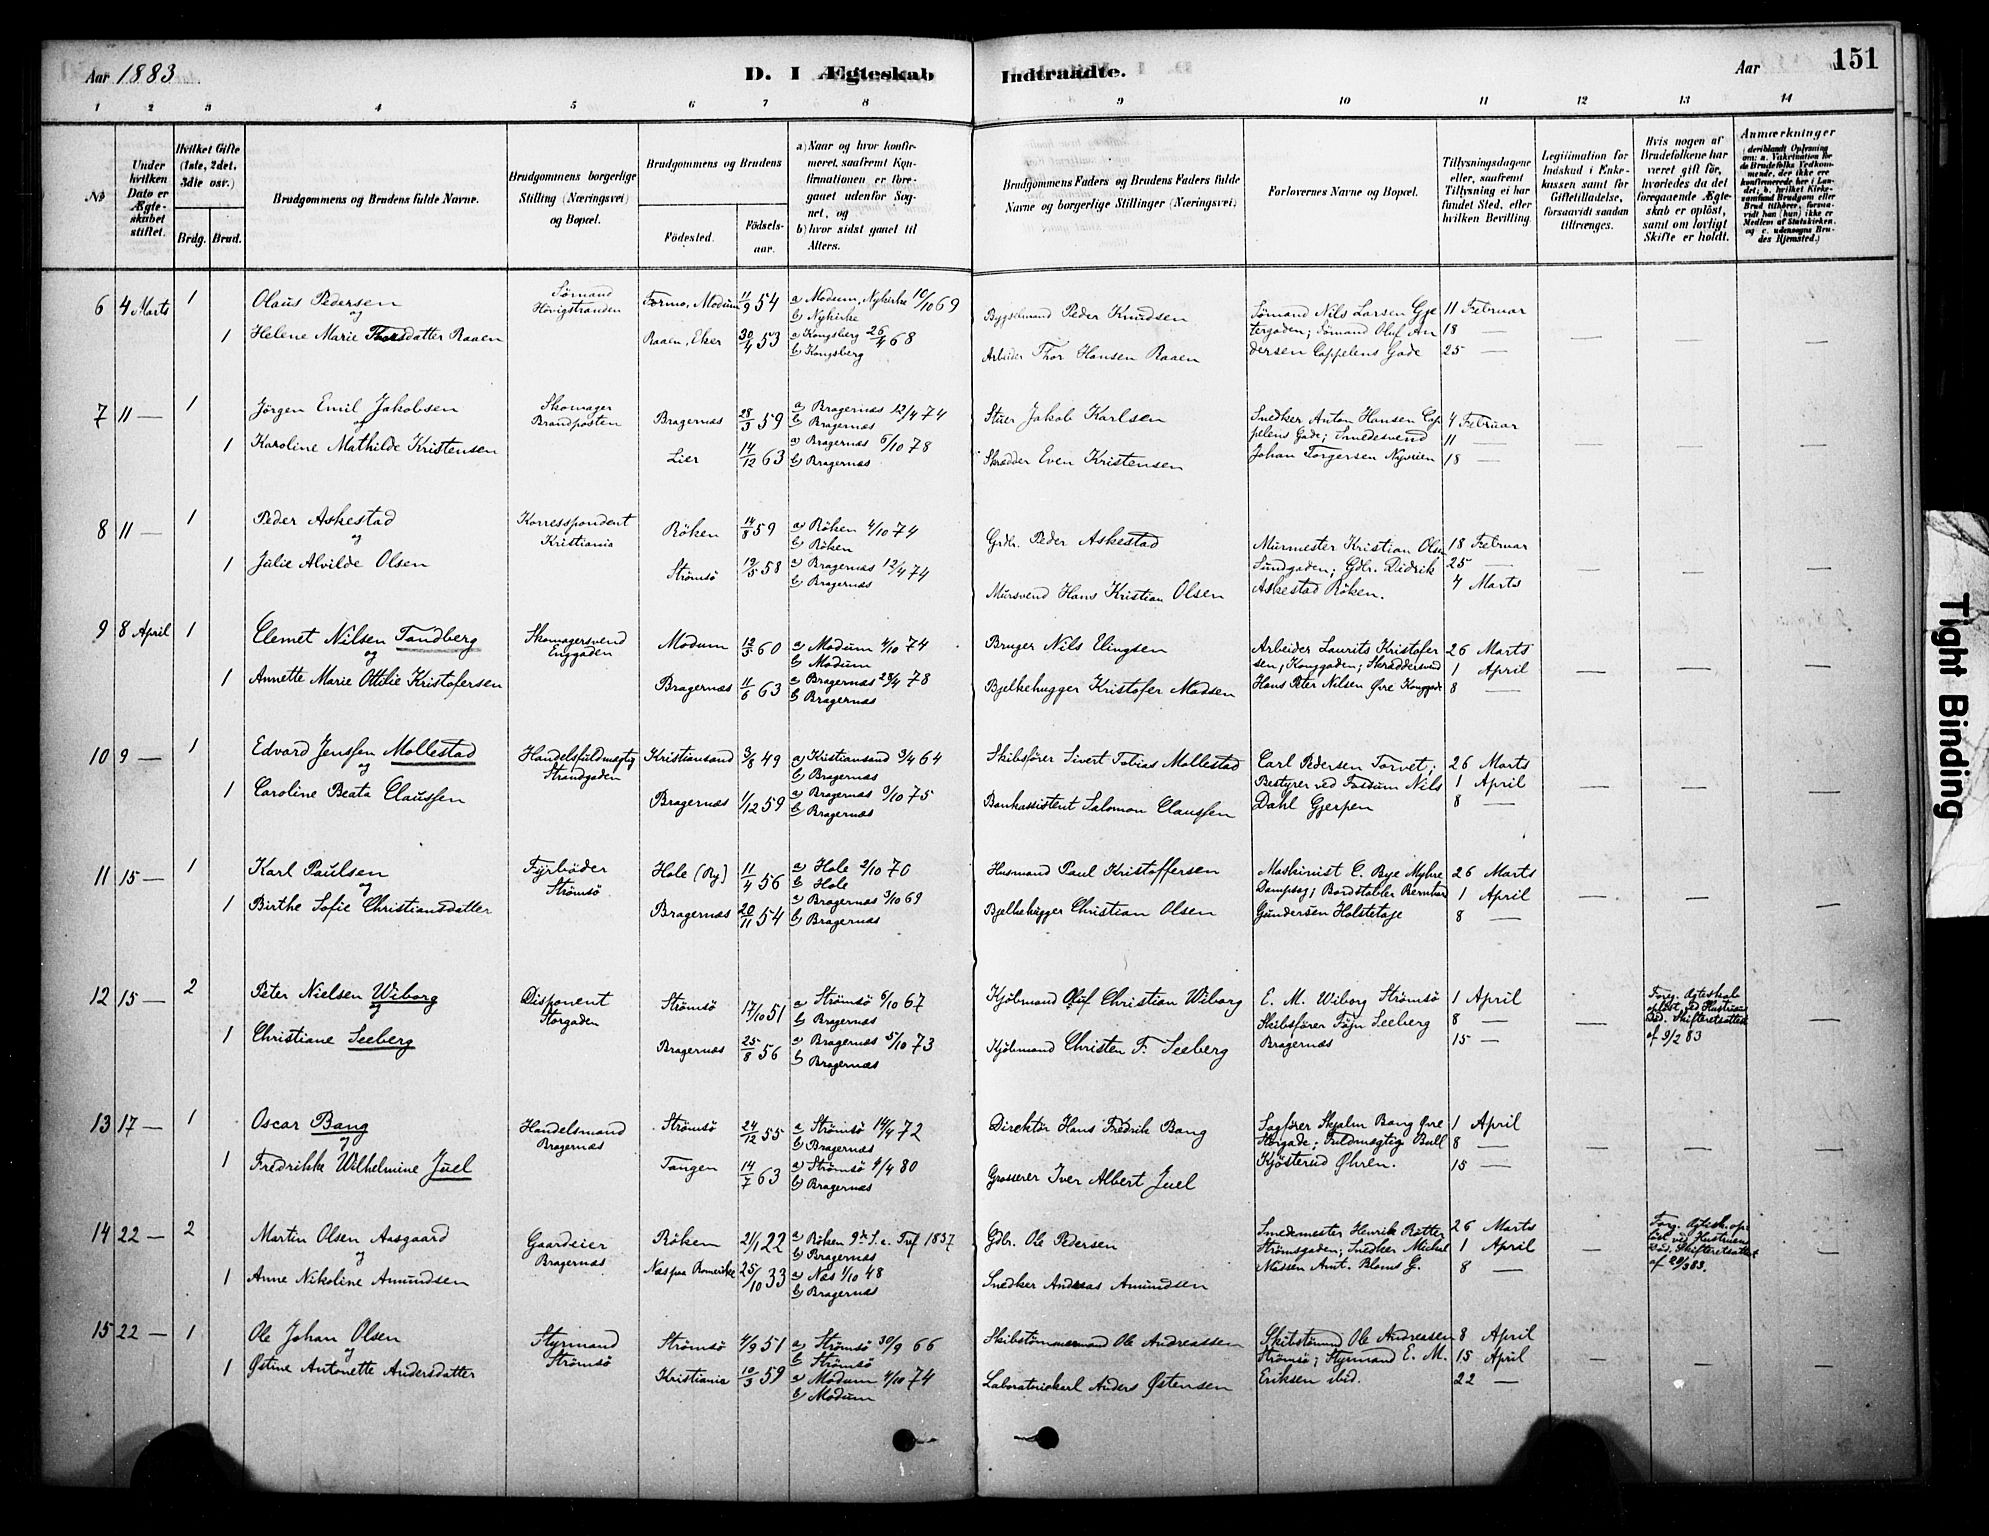 Aar 1883
D. I Ægteskab
Indtraadte.
Aar
151
1 2 3 4 5 6 7 8 9 10 11 12 13 14
No
Under hvilken Dato er Ægteskabet stiftet.
Hvilket Gifte (1ste, 2det, 3die osv.)
Brdg. Brud.
Brudgommens og Brudens fulde Navne.
Brudgommens borgerlige Stilling (Næringsvei) og Bopæl.
Brudgommens og Brudens
Fødested.
Fødselsaar.
a) Naar og hvor konfirmeret, saafremt Konfirmationen er foregaaet udenfor Sognet, og
b) hvor sidst gaaet til Alters.
Brudgommens Faders og Brudens Faders fulde Navne og borgerlige Stillinger (Næringsvei)
Forlovernes Navne og Bopæl.
Tillysningsdagene eller, saafremt Tillysning ei har fundet Sted, efter hvilken Bevilling
Legitimation for Indskud i Enkekassen samt for Giftetilladelse, forsaavidt saadan tiltrænges.
Hvis nogen af Brudefolkene har været gift før, hvorledes da det foregaaende Ægteskab er opløst, samt om lovligt Skifte er holdt.
Anmærkninger (deriblandt Oplysning om: a. Vakcination for de Brudefolks Vedkommende, der ikke ere konfirmerede her i Landet; b. hvilket Kirkesamfund Brudgom eller Brud tilhører, forsaavidt han (hun) ikke er Medlem af Statskirken, og c. udensogns Brudes Hjemsted.)
6 4 Marts 1 Olaus Pedersen Sømand Formo, Modum 11/9 54 a Modum, Nykirke 10/10 69 Bygselmand Peder Knudsen Sømand Nils Larsen Gje 11 Februar
og Hovigstranden b) Nykirke
1 Helene Marie Thorsdatter Raaen Raaen, Eker 30/4 53 a Kongsberg 26/4 68 tergaden; Sømand Oluf An 18 —
b Kongsberg Arbeider Thor Hansen Raaen dersen Cappelens Gade 25 —
7 11 — 1 Jörgen Emil Jakobsen Skomager Bragernæs 28/3 59 a) Bragernæs 12/4 74 Stuer Jakob Karlsen Snedker Anton Hansen Cap 4 Februar
og Brandposten b Bragernæs pelens Gade; Smedesvend 11 —
1 Karoline Mathilde Kristensen Lier 14/12 63 a) Bragernæs 6/10 78 Skrædder Even Kristensen Johan Torgersen Nyveien 18 —
b) Bragernæs
8 11 — 1 Peder Askestad Korresspondent Röken 14/8 59 a) Röken 4/10 74 Grdbr. Peder Askestad Murmester Kristian Olsen 18 Februar
og Kristiania b Röken
1 Julie Alvilde Olsen Strømsö 19/5 58 a) Bragernæs 12/4 74 Sundgaden; Gdbr. Didrik 25 —
b) Bragernæs Mursvend Hans Kristian Olsen Askestad Röken. 4 Marts
9 8 April 1 Clemet Nilsen Tandberg Skomagersvend Modum 12/5 60 a) Modum 4/10 74 Bruger Nils Elingsen Arbeider Laurits Kristofer 26 Marts
og Enggaden b Modum sen, Konggaden; Skræddersvend 1 April
1 Annette Marie Ottilie Kristofersen Bragernæs 11/6 63 a) Bragernæs 28/4 78 Bjelkehugger Kristofer Madsen Hans Peter Nilsen Øvre Konggade 8 —
b Bragernæs
10 9 — 1 Edvard Jenssen Mollestad Handelsfuldmægtig Kristiansand 3/8 49 a) Kristiansand 3/4 64 Skibsfører Sivert Tobias Mollestad Carl Pedersen Torvet; 26 Marts
og Strandgaden b) Bragernæs Bestyrer ved Fossum Nils 1 April
1 Caroline Beata Claussen Bragernæs 1/12 59 a) Bragernæs 3/10 75 Bankassistent Salomon Claussen Dahl Gjerpen 8 —
b Bragernæs
11 15 — 1 Karl Paulsen Fyrbøder Hole (Rg) 11/4 56 a) Hole 2/10 70 Husmand Paul Kristoffersen Maskinist C. Bye Myhre 26 Marts
og Strømsö b Hole Dampsag; Bordstabler Bernhard 1 April
1 Birthe Sofie Christiansdatter Bragernæs 20/11 54 a) Bragernæs 3/10 69 Bjelkehugger Christian Olsen Gundersen Holstetoje 8 —
b Bragernæs
12 15 — 2 Peter Nielsen Wiborg Disponent Strømsö 17/10 51 a) Strømsö 6/10 67 Kjøbmand Oluf Christian Wiborg E. M. Wiborg Strømsö 1 April Foreg. Ægteskab
og Storgaden b Bragernæs Skibsfører Fögn Seeberg 8 — opløst ved Hustruens
1 Christiane Seeberg Bragernæs 25/8 56 a) Bragernæs 5/10 73 Kjøbmand Christen F. Seeberg Bragernæs 15 — Død. Skifteretsattest
b Bragernæs af 9/2 83
13 17 — 1 Oscar Bang Handelsmand Strømsö 24/12 55 a Strømsö 14/4 72 Direktör Hans Fredrik Bang Sagfører Skjalm Bang Øvre 1 April
og Bragernæs b) Bragernæs Storgade; Fuldmægtig Bull 8 —
1 Fredrikke Wilhelmine Juel Tangen 14/7 63 a) Strømsö 4/4 80 Grosserer Iver Albert Juel Kjösterud Øhren. 15 —
b) Bragernæs
14 22 — 2 Martin Olsen Aasgaard Gaardeier Röken 21/1 22 a Röken 9de S. e. Tref 1837 Gdbr. Ole Pedersen Smedemester Henrik Rötter 26 Marts Foreg. Ægtesk. op
og Bragernæs b Bragernæs Strømsgaden; Snedker Michal 1 April løst ved Hustruens
1 Anne Nikoline Amundsen Næs paa Romerike 25/10 33 a) Næs 1/10 48 Snedker Andreas Amundsen Madsen Amt. Bloms G. 8 — Død. Skifteretsattest
b Bragernæs af 20/3 83.
15 22 — 1 Ole Johan Olsen Styrmand Strømsö 4/9 51 a) Strømsö 30/9 66 Skibstømmermand Ole Andreassen Skibstømmd Ole Andreasen 8 April
og Strømsö b Strømsö Strømsö; Styrmand E. M. 15 April
1 Østine Antonette Andersdatter Kristiania 10/3 59 a) Modum 4/10 74 Laboratoriekarl Anders Østensen Eriksen ibid. 22 —
b) Modum
Tight Binding